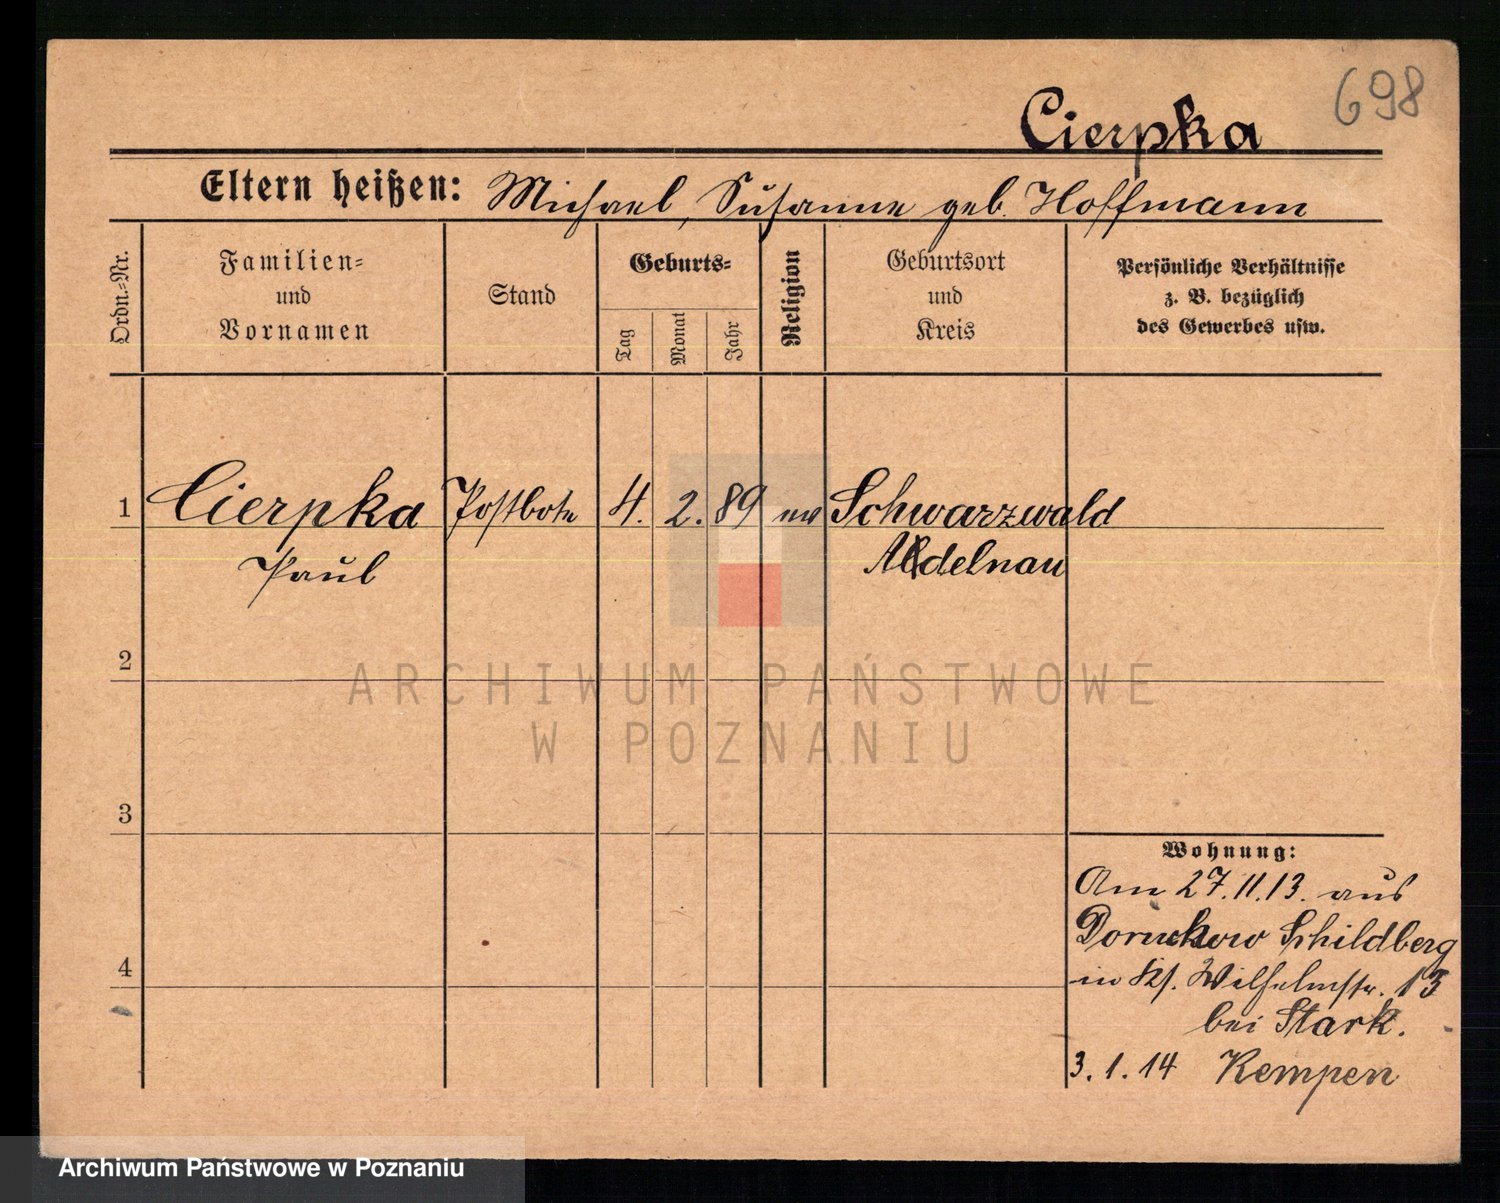 698
Cierpka
Eltern heißen: Michael, Susanne geb. Hoffmann
Ordn.-Nr.
Familien-
und
Vornamen
Stand
Geburts-
Tag
Monat
Jahr
Religion
Geburtsort
und
Kreis
Persönliche Verhältnisse
z. B. bezüglich
des Gewerbes usw.
1 Cierpka Postbote 4. 2. 89 ev Schwarzwald
Paul Adelnau
2
3
4
Wohnung:
Am 27.11.13. aus
Doruchow Schildberg
in Wilhelmstr. 13
bei Stark.
3.1.14 Kempen
ARCHIWUM PAŃSTWOWE
W POZNANIU
Archiwum Państwowe w Poznaniu